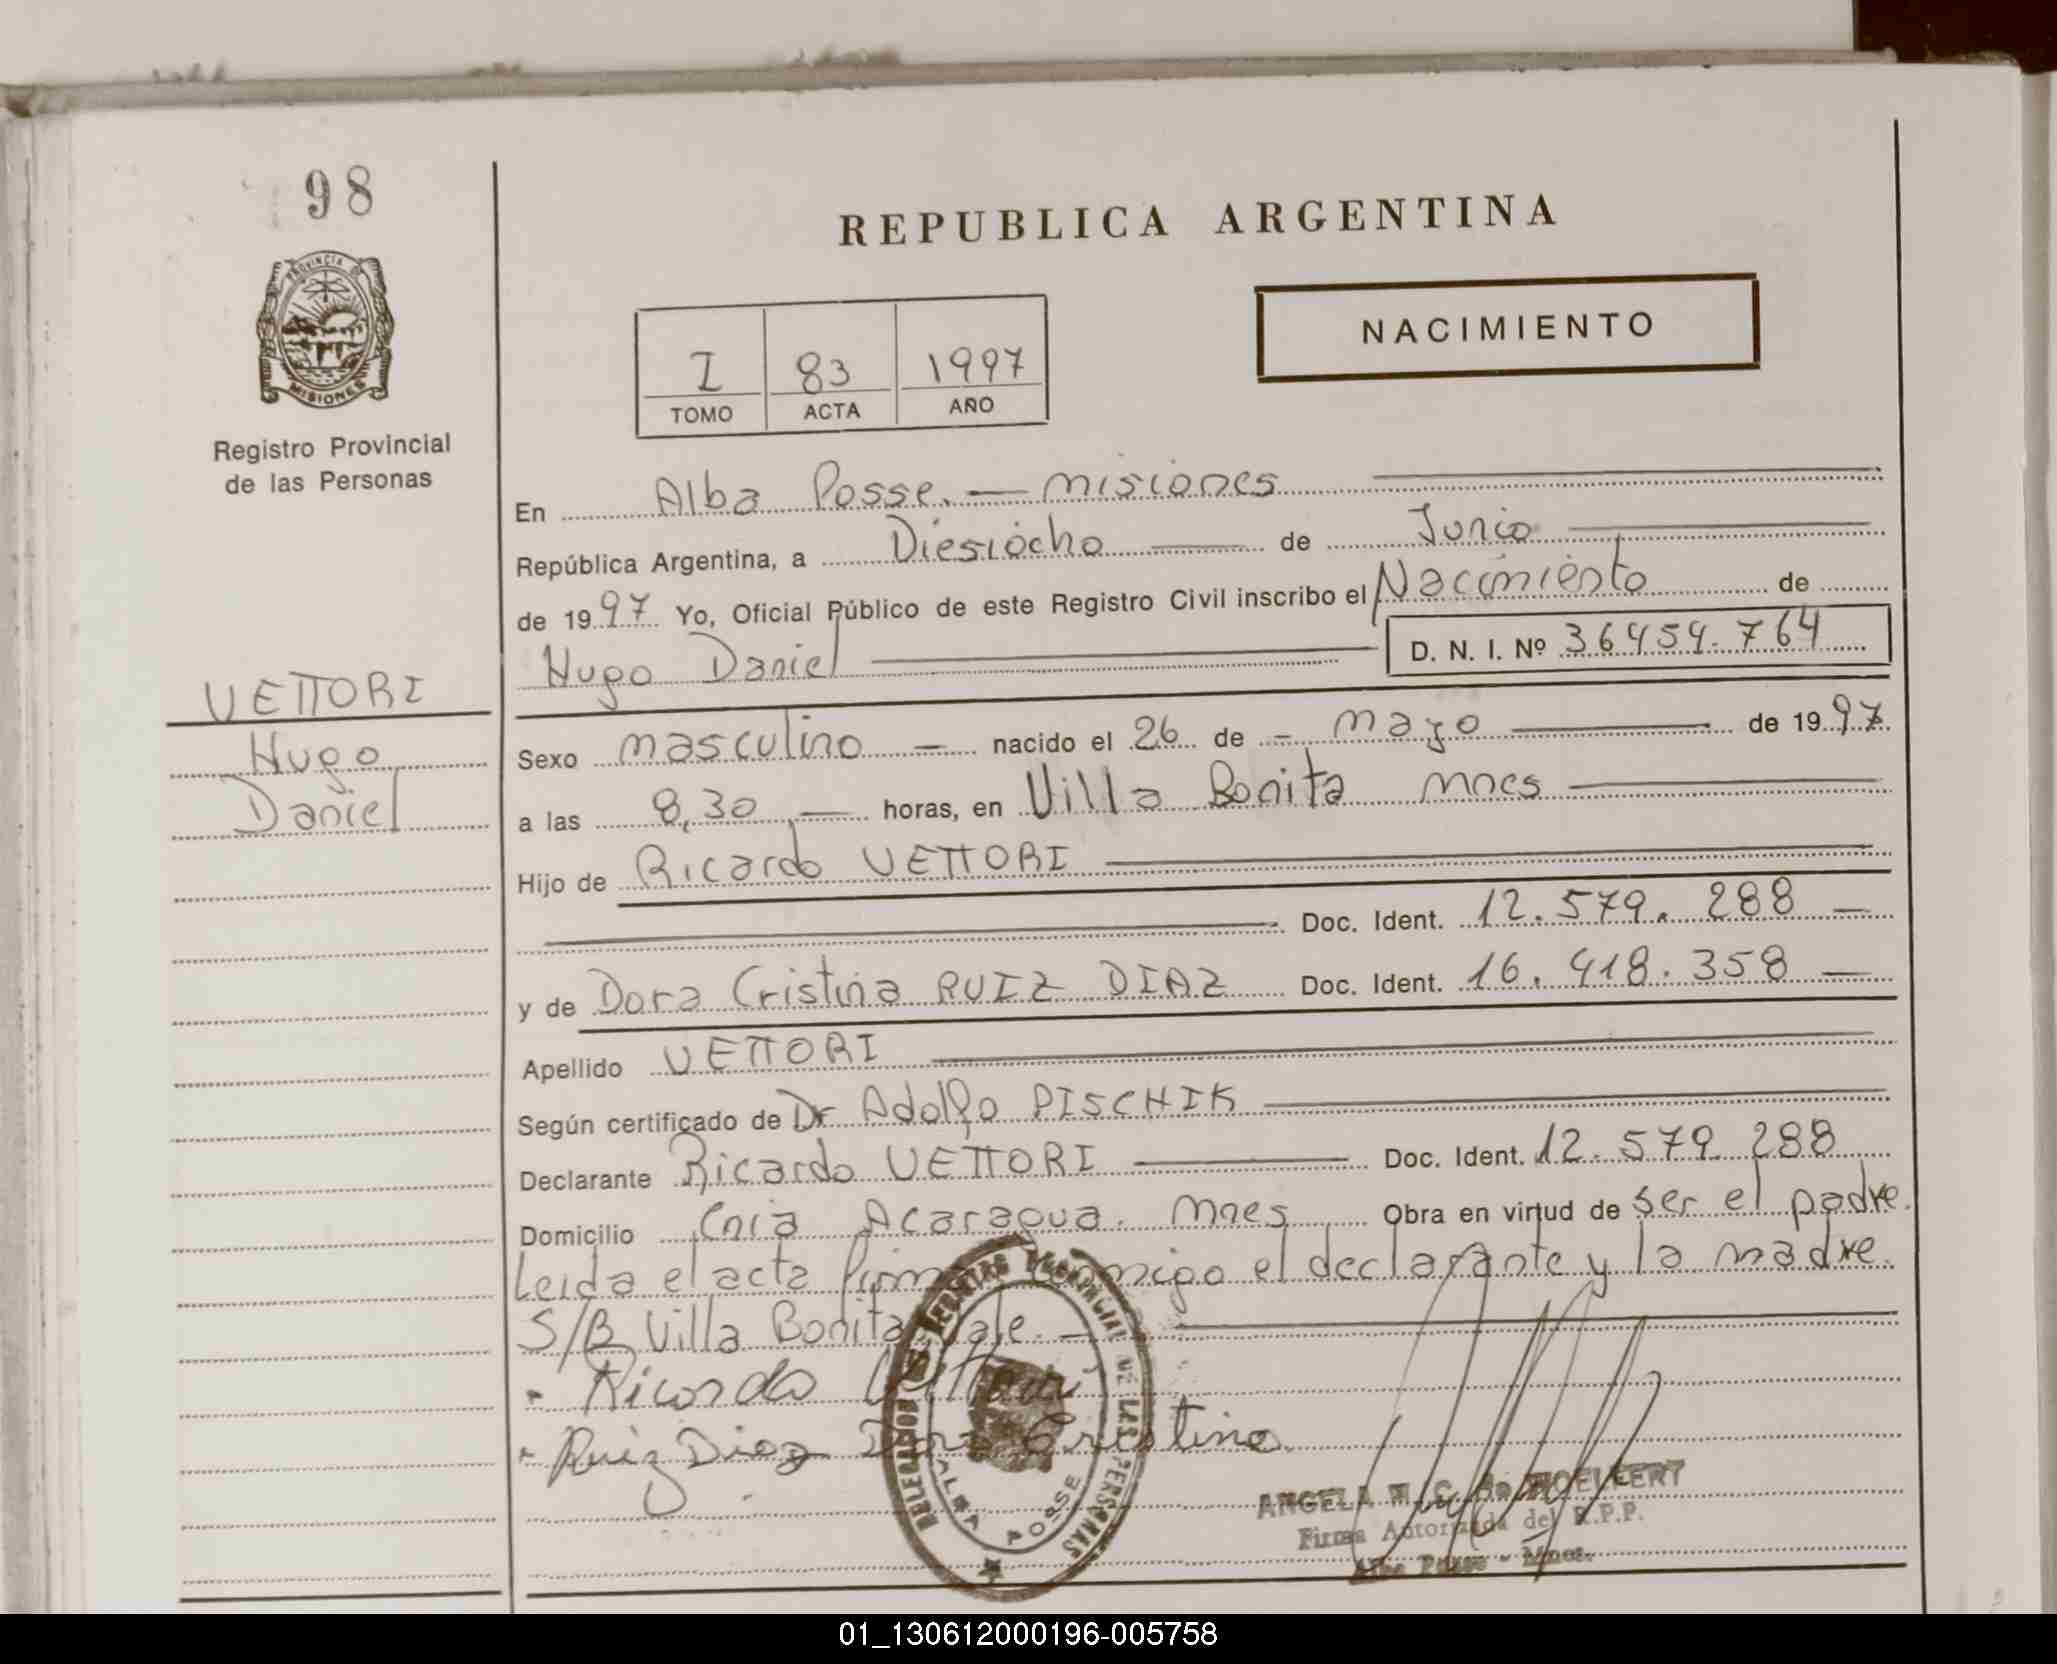 98
PROVINCIA DE
MISIONES
Registro Provincial
de las Personas
VETTORI
Hugo
Daniel
REPUBLICA ARGENTINA
NACIMIENTO
I 83 1997
TOMO ACTA AÑO
En Alba Posse. — Misiones
República Argentina, a Diesiocho — de Junio
de 1997 Yo, Oficial Público de este Registro Civil inscribo el Nacimiento de
Hugo Daniel D. N. I. Nº 36454.764
Sexo masculino — nacido el 26 de - mayo — de 1997.
a las 8,30 — horas, en Villa Bonita Mnes
Hijo de Ricardo VETTORI
Doc. Ident. 12.579.288 —
y de Dora Cristina RUIZ DIAZ Doc. Ident. 16.418.358 —
Apellido VETTORI
Según certificado de Dr Adolfo PISCHIK
Declarante Ricardo VETTORI — Doc. Ident. 12.579.288
Domicilio Cnia Acaragua. Mnes Obra en virtud de ser el padre.
Leida el acta conmigo el declarante y la madre.
S/B Villa Bonita Vale. —
Ricardo Vettori
Ruiz Diaz Dora Cristina
DELEGACION REGISTRO PROVINCIAL DE LAS PERSONAS
ALBA POSSE
ANGELA M. C. de
Firma Autorizada del R.P.P.
Alba Posse - Mnes.
01_130612000196-005758